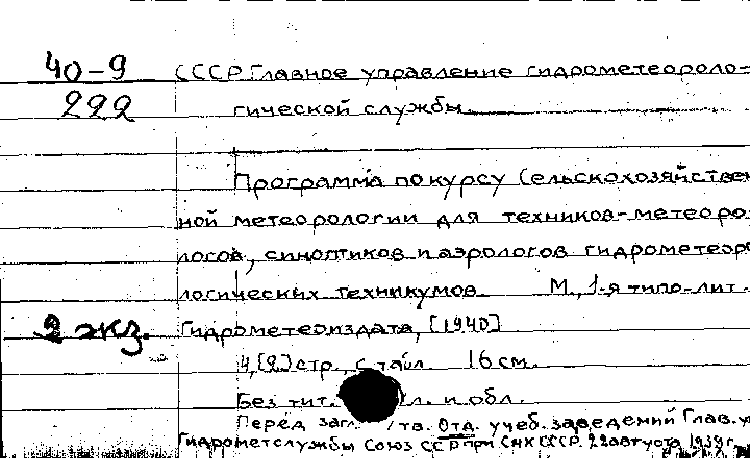 40-9 СССР Главное управление гидрометеороло-
222 гической службы.
Программа по курсу Сельскохозяйствен
ной метеорологии для техников-метеоро
логов, синоптиков и аэрологов гидрометеоро
логических техникумов М., 1-я типо-лит.
2 экз. Гидрометеоиздата, [1940]
4,[2] стр., с табл. 16 см.
Без тит. л. и обл.
Перед загл. Отд. учеб. заведений Глав. у
Гидрометслужбы Союз ССР при СНК СССР. 22 августа 1939 г.